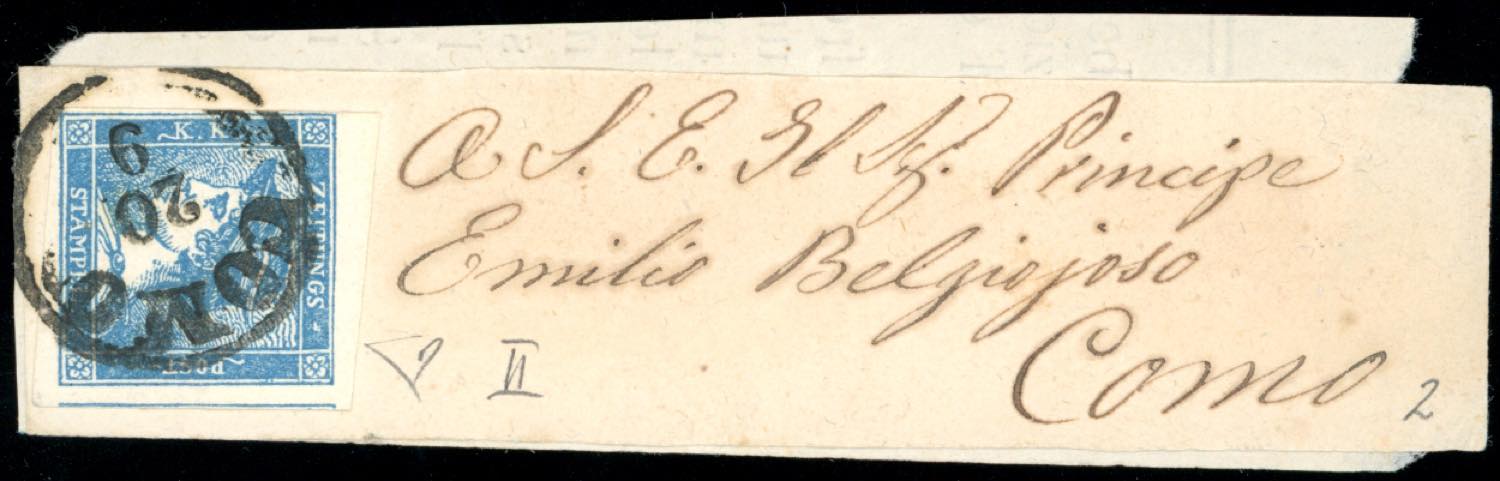 K. K.
ZEITUNGS
STAMPEL
POST
COMO
20
9
A S. E. Il Sig. Principe
Emilio Belgiojoso
Como
II
2